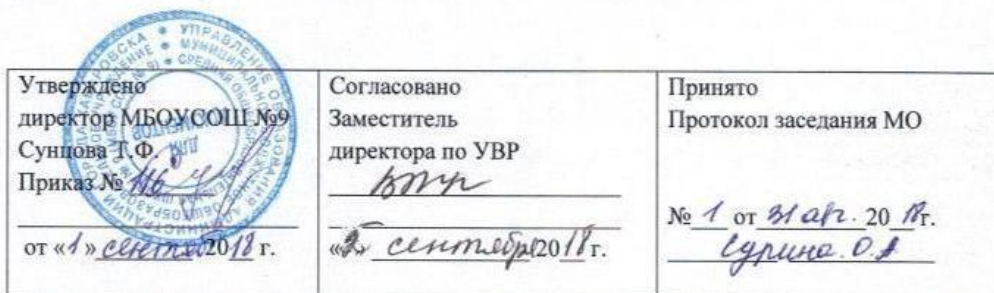 Утверждено
директор МБОУСОШ №9
Сунцова Т.Ф.
Приказ № 116
от «1» сентября 2018 г.
Согласовано
Заместитель
директора по УВР
сентября 2018 г.
Принято
Протокол заседания МО
№ 1 от 31 авг. 2018г.
Сурина О.А
ДЛЯ
ДОКУМЕНТОВ